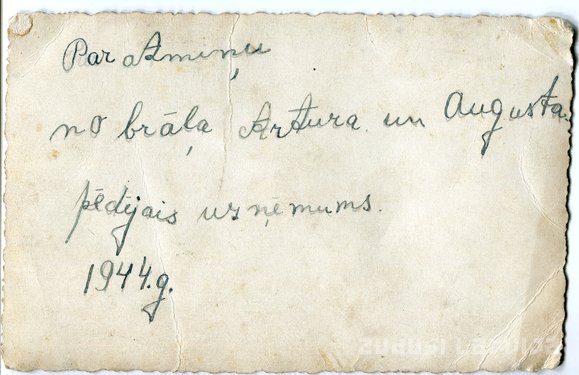 Par atmiņu
no brāļa Artura un Augusta.
pēdējais uzņēmums.
1944.g.